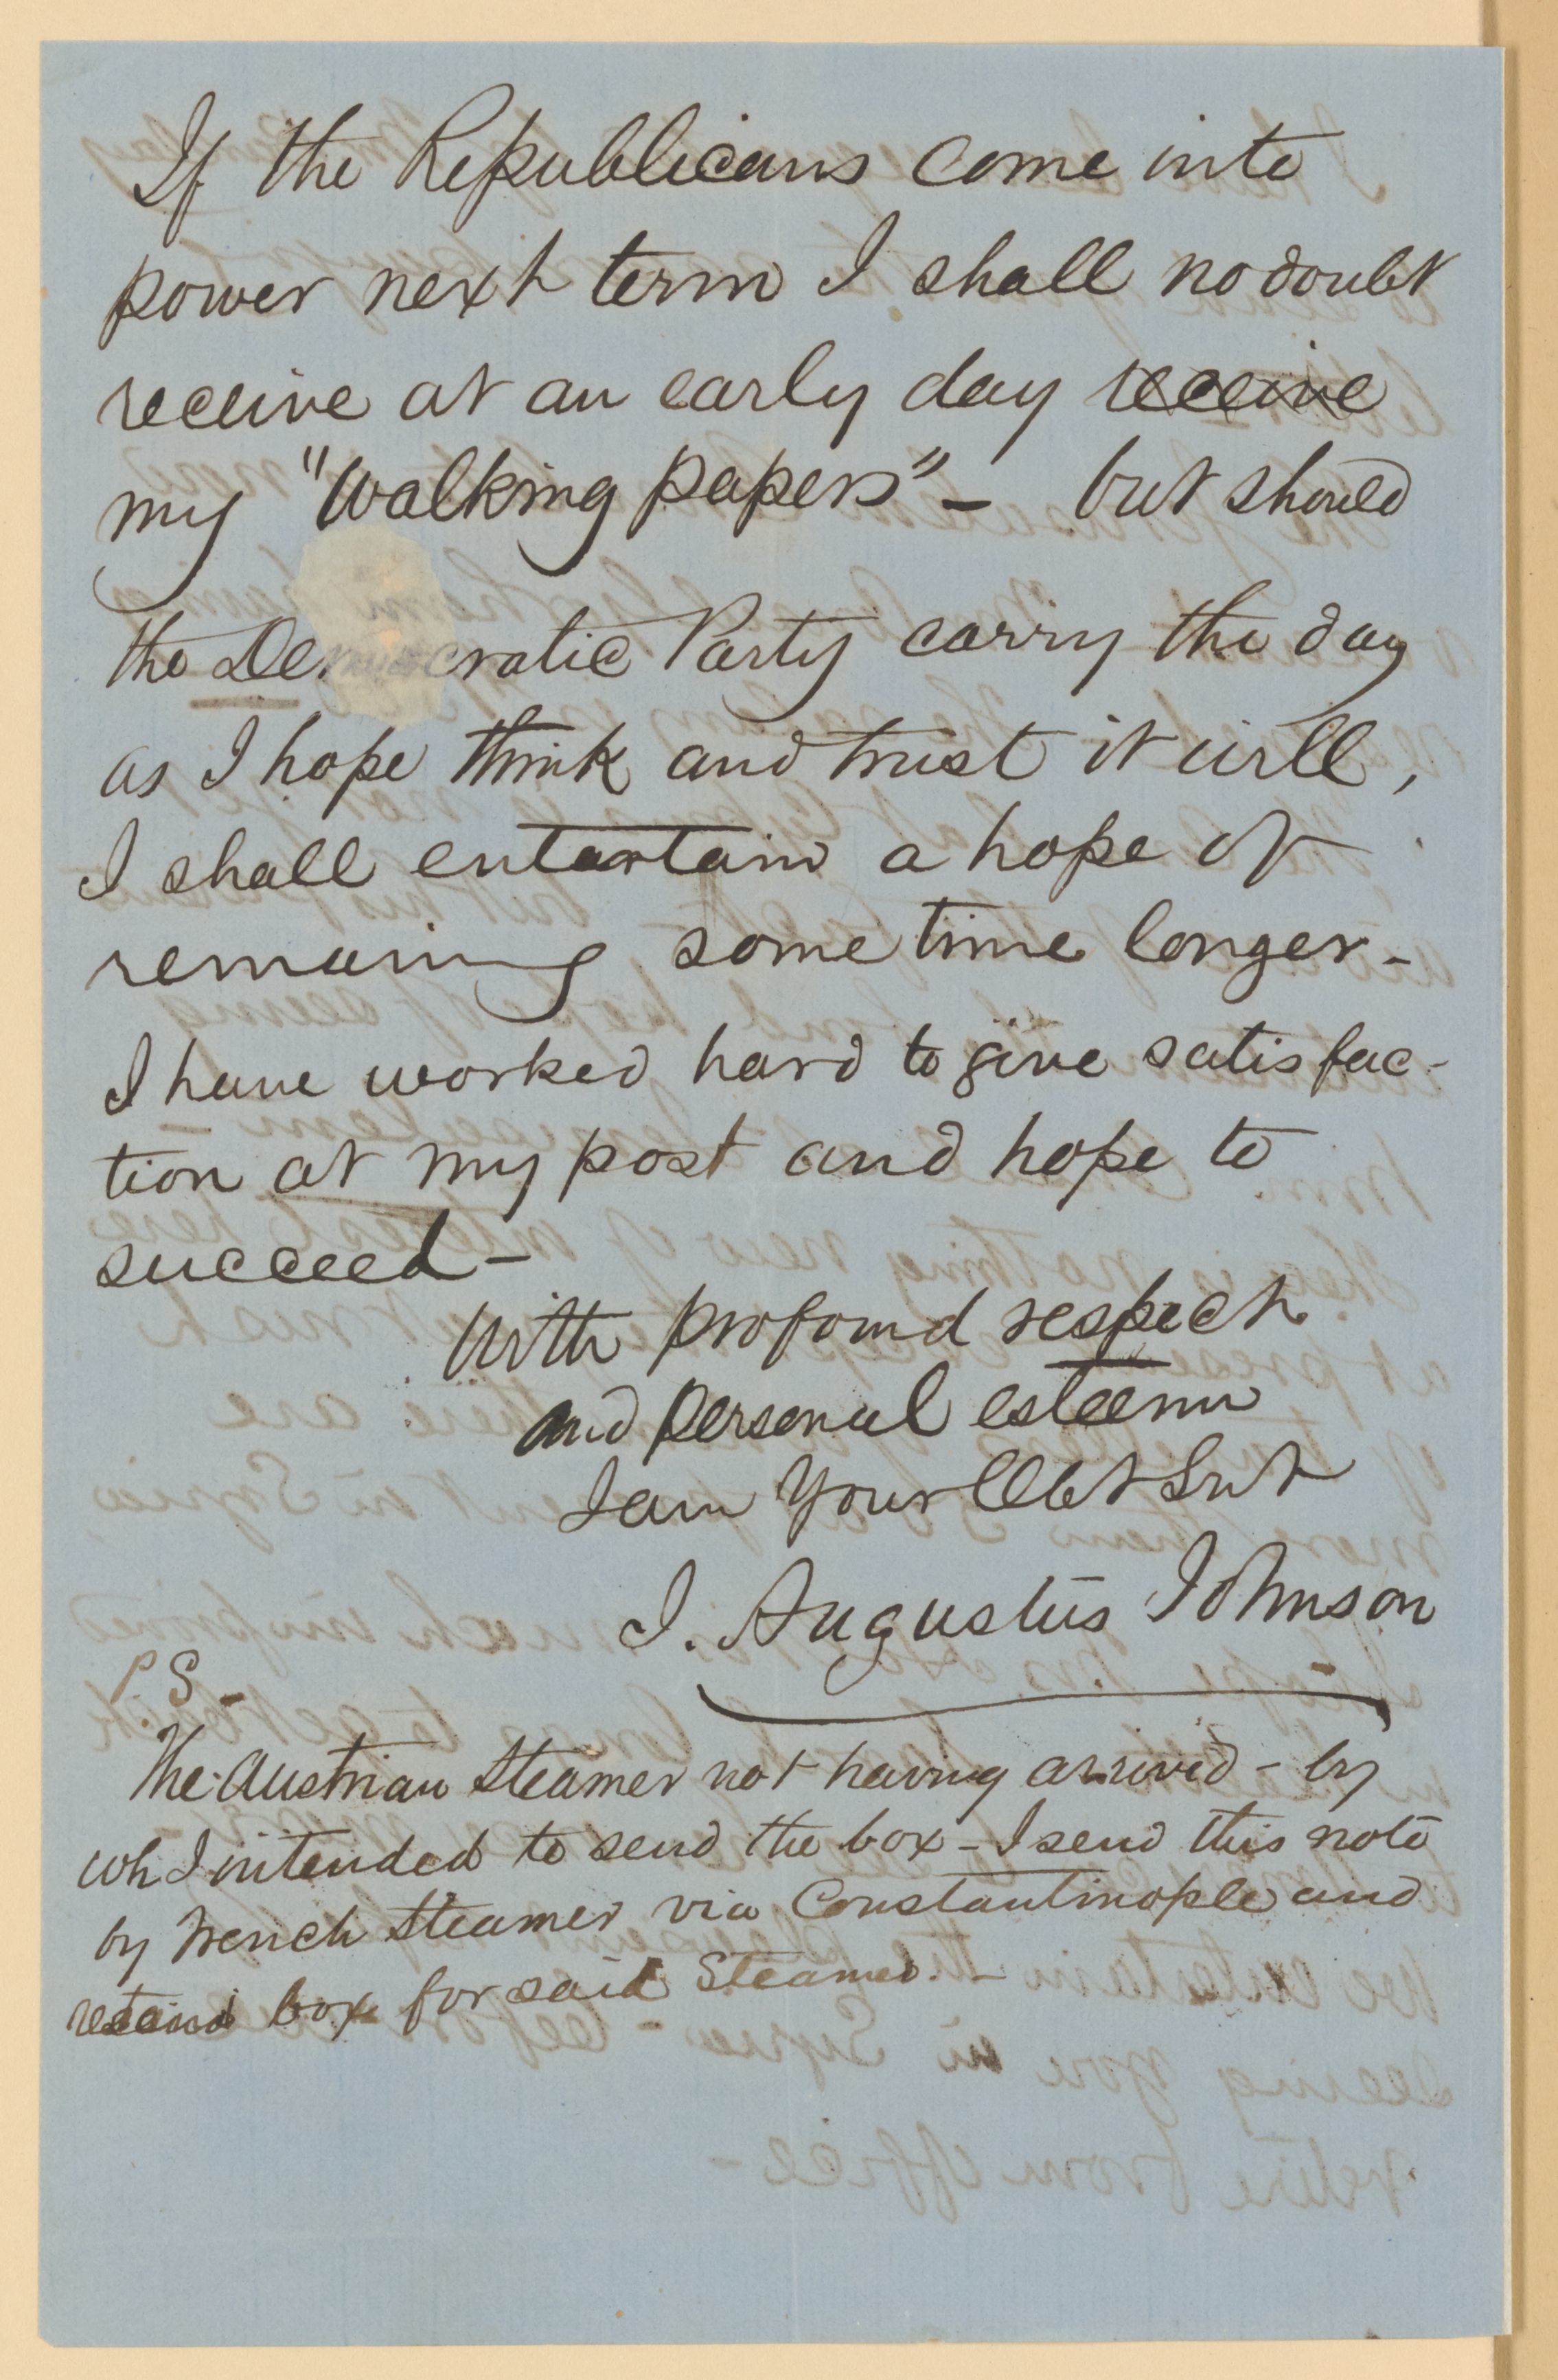 If the Republicans come into
power next term I shall no doubt
receive at an early day receive
my "Walking papers" – but should
the Democratic Party carry the day
as I hope think and trust it will,
I shall entertain a hope of
remaining some time longer –
I have worked hard to give satisfac-
tion at my post and hope to
succeed –
With profound respect
and personal esteem
I am Your Obt Svt
J. Augustus Johnson
P.S –
The Austrian Steamer not having arrived – by
wh I intended to send the box – I send this note
by French Steamer via Constantinople and
retain box for said Steamer. –